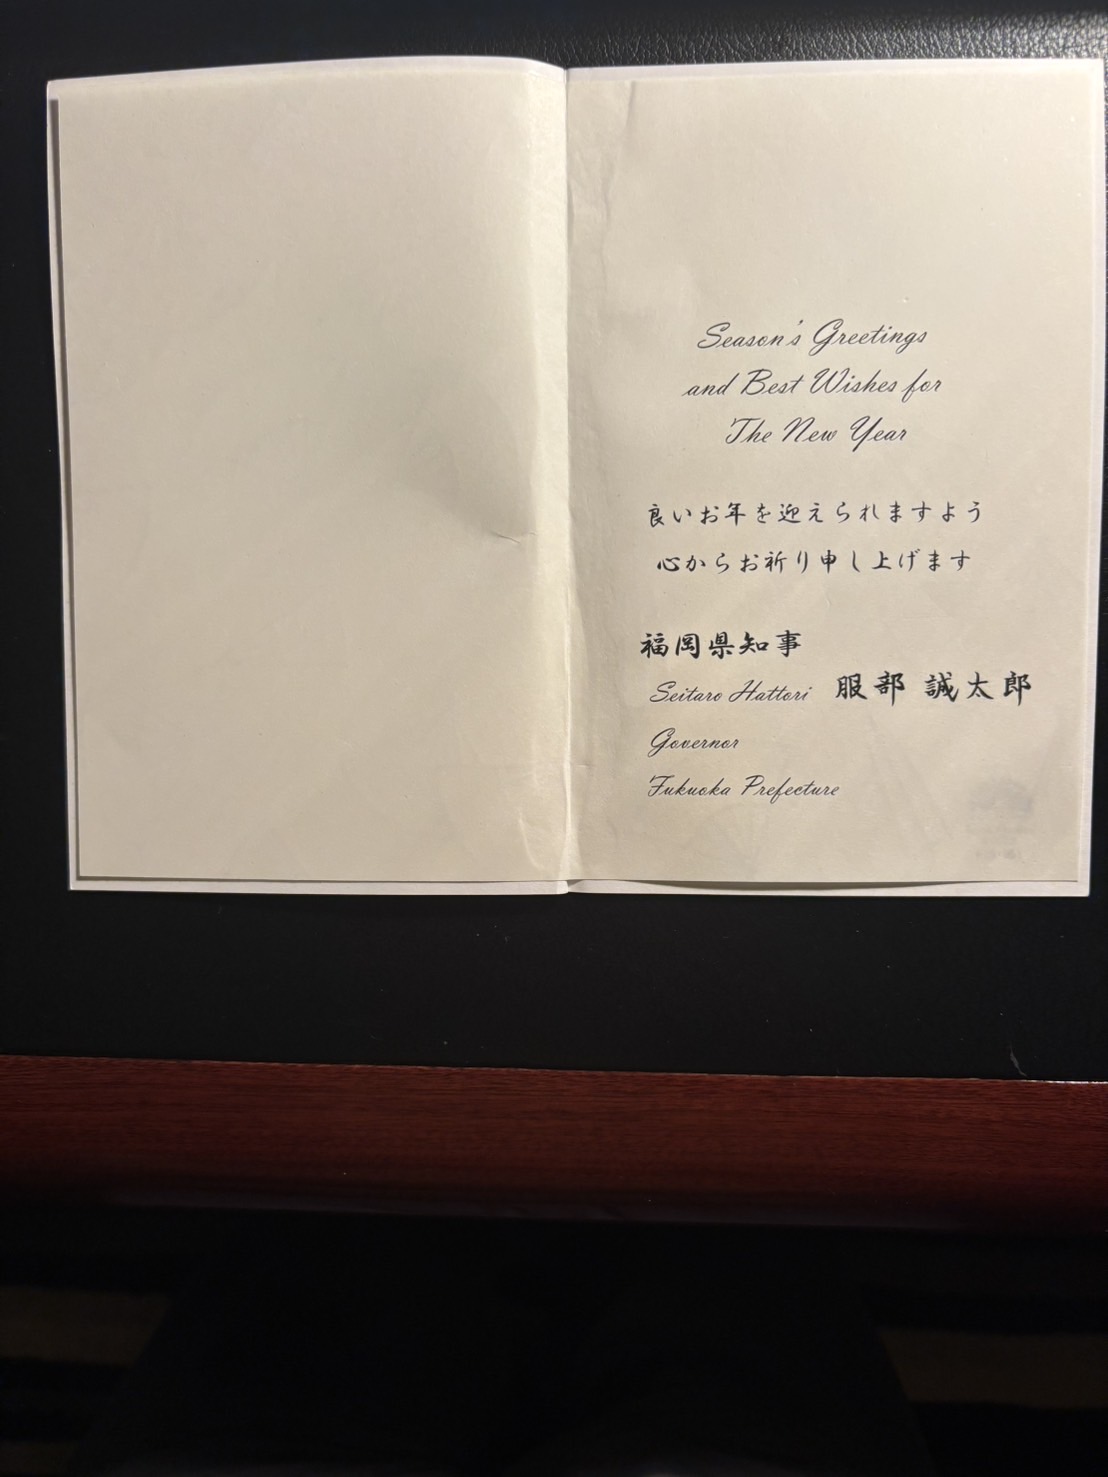 Season's Greetings
and Best Wishes for
The New Year
良いお年を迎えられますよう
心からお祈り申し上げます
福岡県知事
Seitaro Hattori 服部 誠太郎
Governor
Fukuoka Prefecture